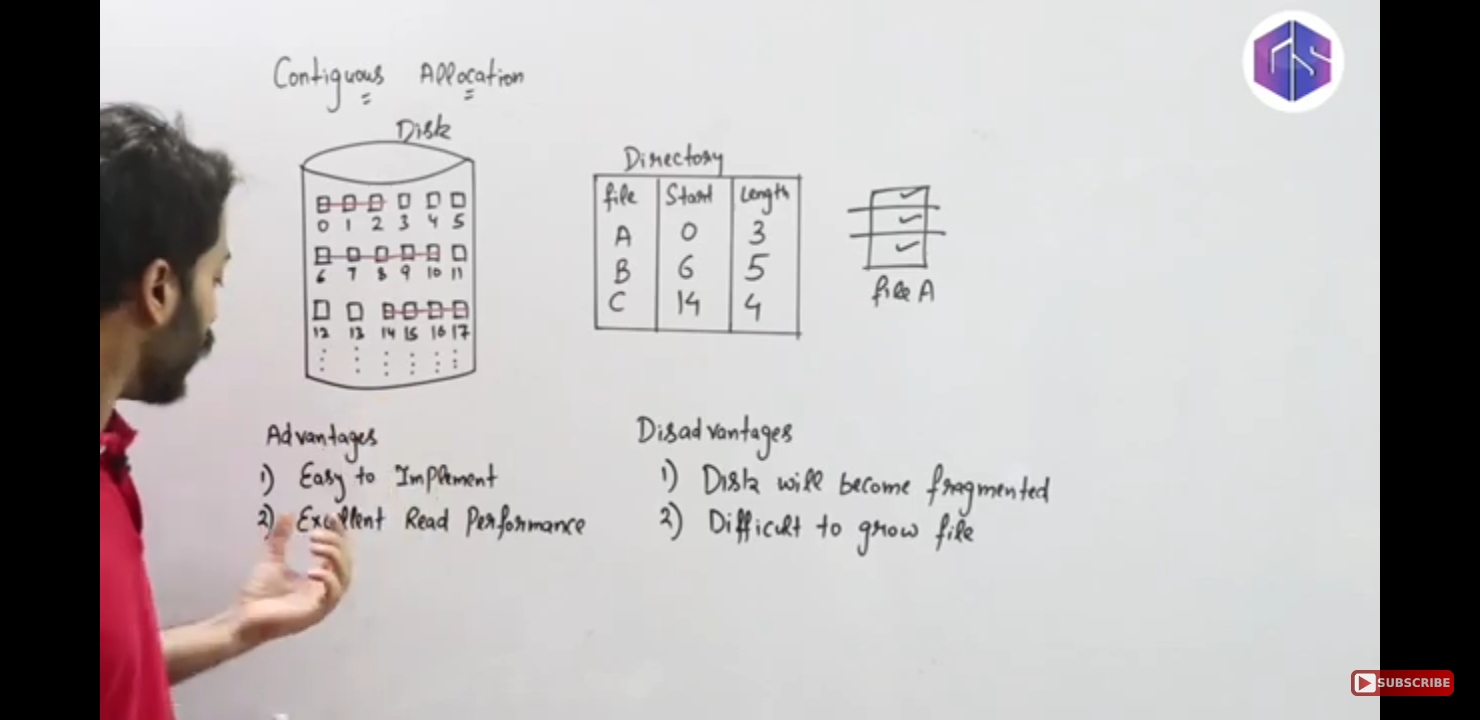 Contiguous Allocation
GS
Disk
0 1 2 3 4 5
6 7 8 9 10 11
12 13 14 15 16 17
Directory
file Start Length
A 0 3
B 6 5
C 14 4
file A
Advantages
1) Easy to Implement
2) Excellent Read Performance
Disadvantages
1) Disk will become fragmented
2) Difficult to grow file
SUBSCRIBE